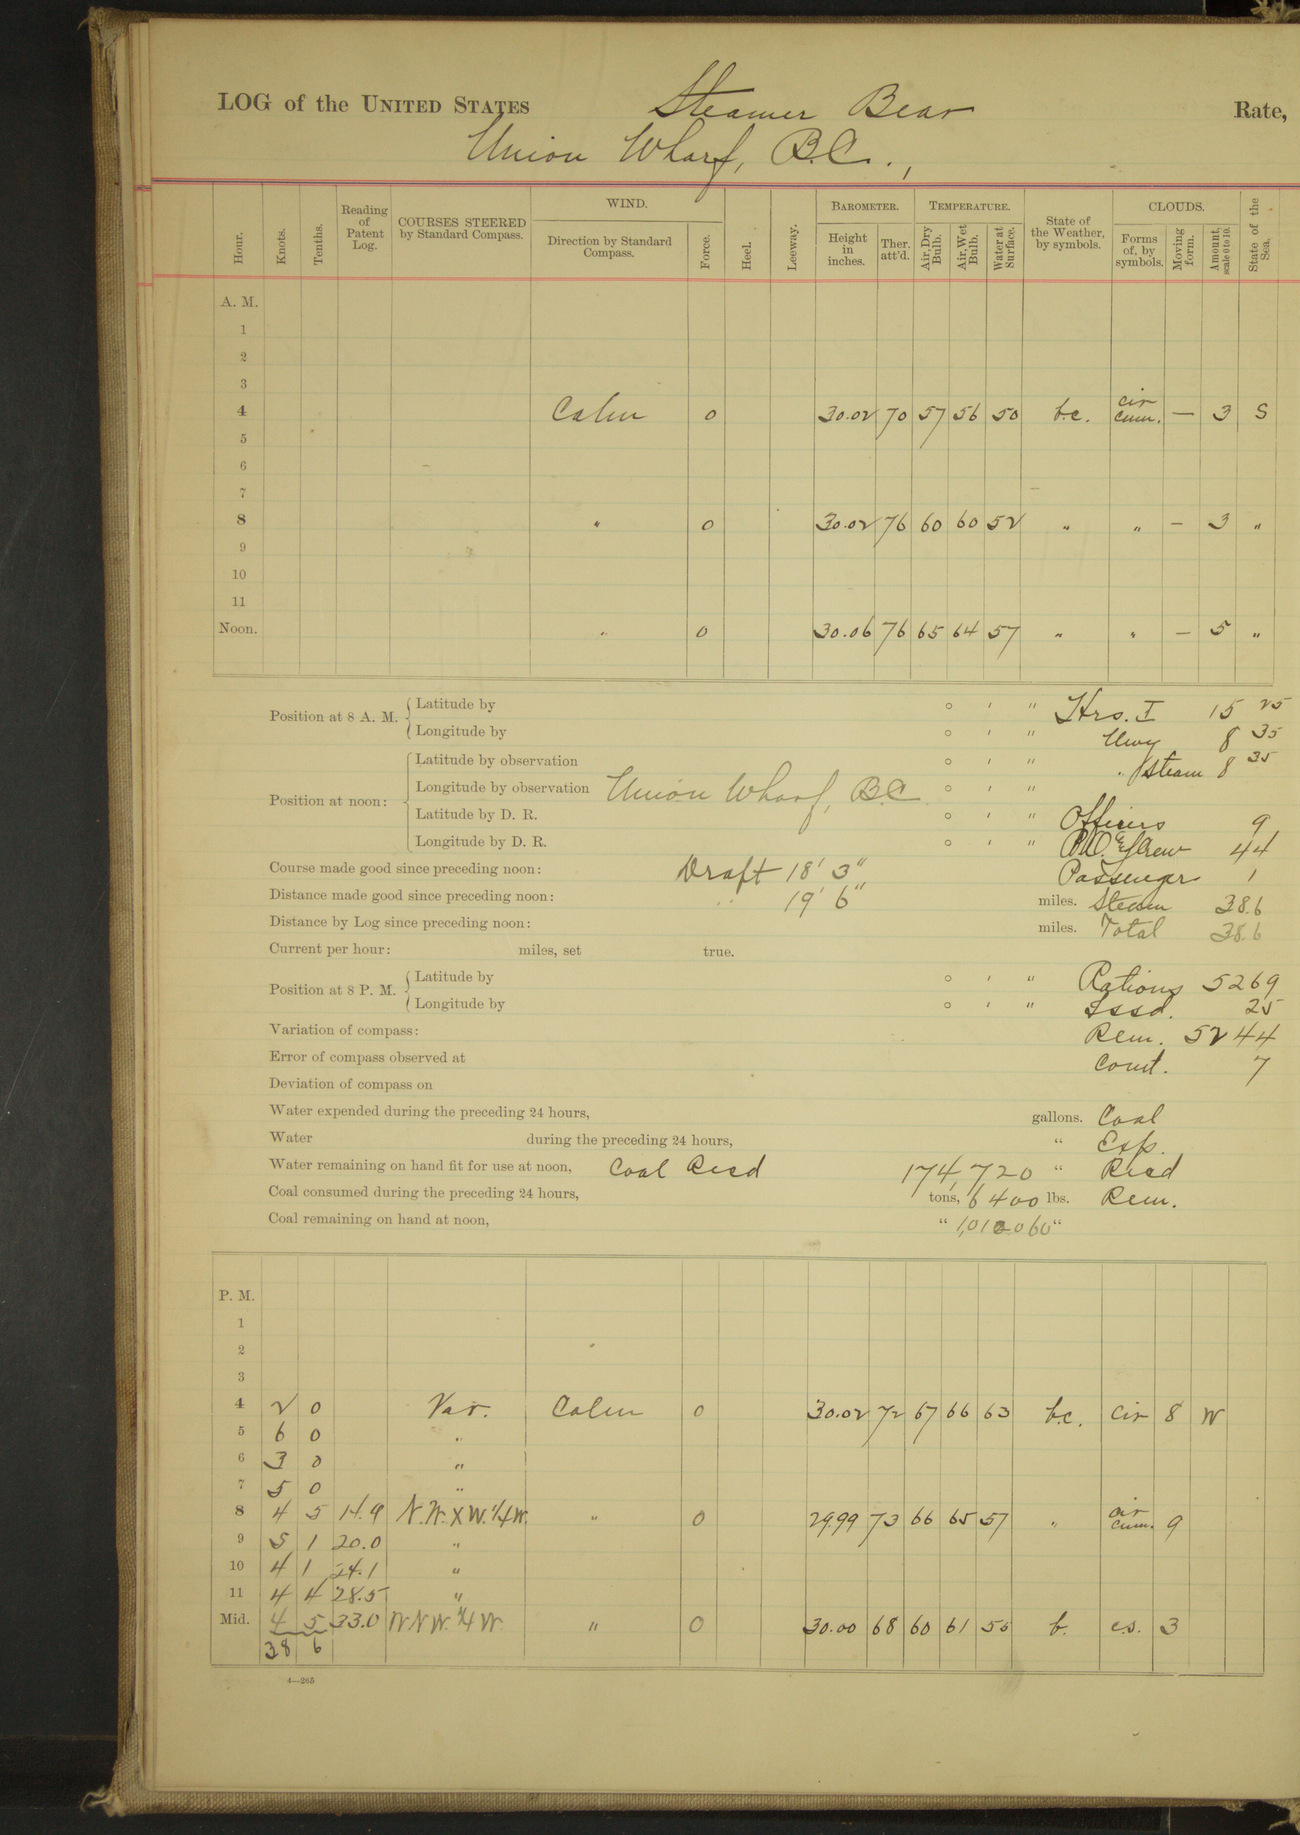 LOG of the UNITED STATES Steamer Bear Rate,
Union Wharf, B.C.,
Hour. Knots. Tenths. Reading of Patent Log. COURSES STEERED by Standard Compass. WIND. Direction by Standard Compass. Force. Heel. Leeway. BAROMETER. Height in inches. Ther. att'd. TEMPERATURE. Air, Dry Bulb. Air, Wet Bulb. Water at Surface. State of the Weather, by symbols. CLOUDS. Forms of, by symbols. Moving form. Amount, scale 0 to 10. State of the Sea.
A. M.
1
2
3
4 Calm 0 30.02 70 57 56 50 b.c. cir cum. — 3 S
5
6
7
8 " 0 30.02 76 60 60 52 " " – 3 "
9
10
11
Noon. " 0 30.06 76 65 64 57 " " — 5 "
Position at 8 A. M. Latitude by ° ′ ″ Hrs. I 15 25
Longitude by ° ′ ″ Uwy 8 35
Position at noon: Latitude by observation ° ′ ″ " Steam 8 35
Longitude by observation Union Wharf, B.C. ° ′ ″
Latitude by D. R. ° ′ ″ Officers 9
Longitude by D. R. ° ′ ″ P.O. & Crew 44
Course made good since preceding noon: Draft 18' 3" Passenger 1
Distance made good since preceding noon: " 19' 6" miles. Steam 38.6
Distance by Log since preceding noon: miles. Total 38.6
Current per hour: miles, set true.
Position at 8 P. M. Latitude by ° ′ ″ Rations 5269
Longitude by ° ′ ″ Issd. 25
Variation of compass: Rem. 5244
Error of compass observed at Comt. 7
Deviation of compass on
Water expended during the preceding 24 hours, gallons. Coal
Water during the preceding 24 hours, " Exp.
Water remaining on hand fit for use at noon, Coal Recd 174,720 " Recd
Coal consumed during the preceding 24 hours, tons, 6400 lbs. Rem.
Coal remaining on hand at noon, " 1,012060 "
P. M.
1
2
3
4 2 0 Var. Calm 0 30.02 72 67 66 63 b.c. cir 8 W
5 6 0 "
6 3 0 "
7 5 0 "
8 4 5 14.9 N.W. X W. 1/4 W. " 0 29.99 73 66 65 57 " cir cum. 9
9 5 1 20.0 "
10 4 1 24.1 "
11 4 4 28.5 "
Mid. 4 5 33.0 W N W. 1/4 W. " 0 30.00 68 60 61 56 b. c.s. 3
38 6
4—265